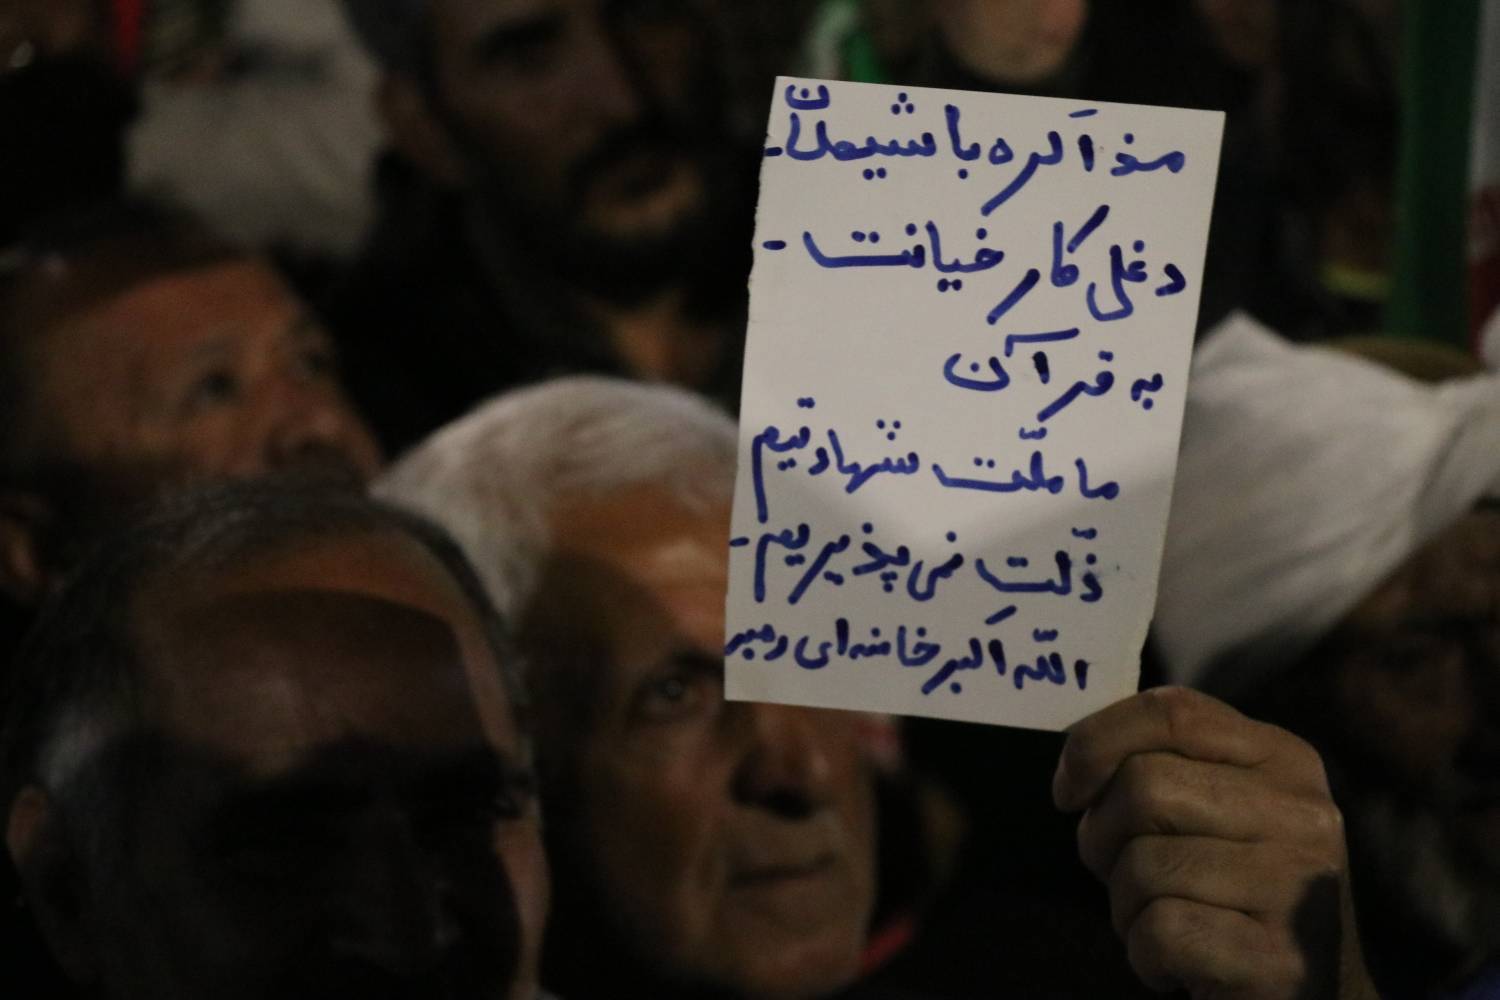 مذاکره با شیطان -
دغلی کار خیانت -
به قرآن
ما ملّت شهادتیم
ذّلتِ نمی پذیریم -
اللّه اکبر خامنه ای رهبر